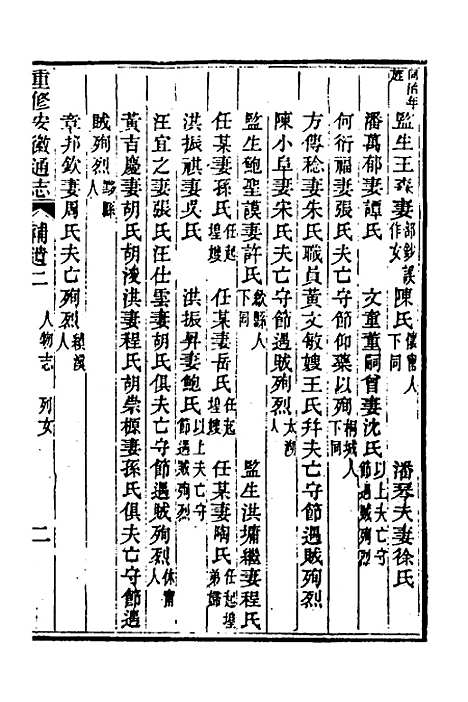 同治年旌
監生王森妻部鈔誤作女陳氏懷甯人下同 潘琴夫妻徐氏
潘萬郁妻譚氏 文童董嗣曾妻沈氏以上夫亡守節遇賊殉烈
何衍福妻張氏夫亡守節仰藥以殉桐城人下同
方傳稔妻朱氏職員黃文敏嫂王氏幷夫亡守節遇賊殉烈
陳小阜妻宋氏夫亡守節遇賊殉烈太湖人
監生鮑聖謨妻許氏歙縣人下同 監生洪墉繼妻程氏
任某妻孫氏任起煌嫂 任某妻岳氏任起煌嫂 任某妻陶氏任起煌弟婦
洪振祺妻吳氏 洪振昇妻鮑氏以上夫亡守節遇賊殉烈
汪宜之妻張氏汪仕雲妻胡氏俱夫亡守節遇賊殉烈休甯人
黃吉慶妻胡氏胡浚洪妻程氏胡崇橱妻孫氏俱夫亡守節遇
賊殉烈黟縣人
章邦欽妻周氏夫亡殉烈績溪人
重修安徽通志 補遺二 人物志 列女 二